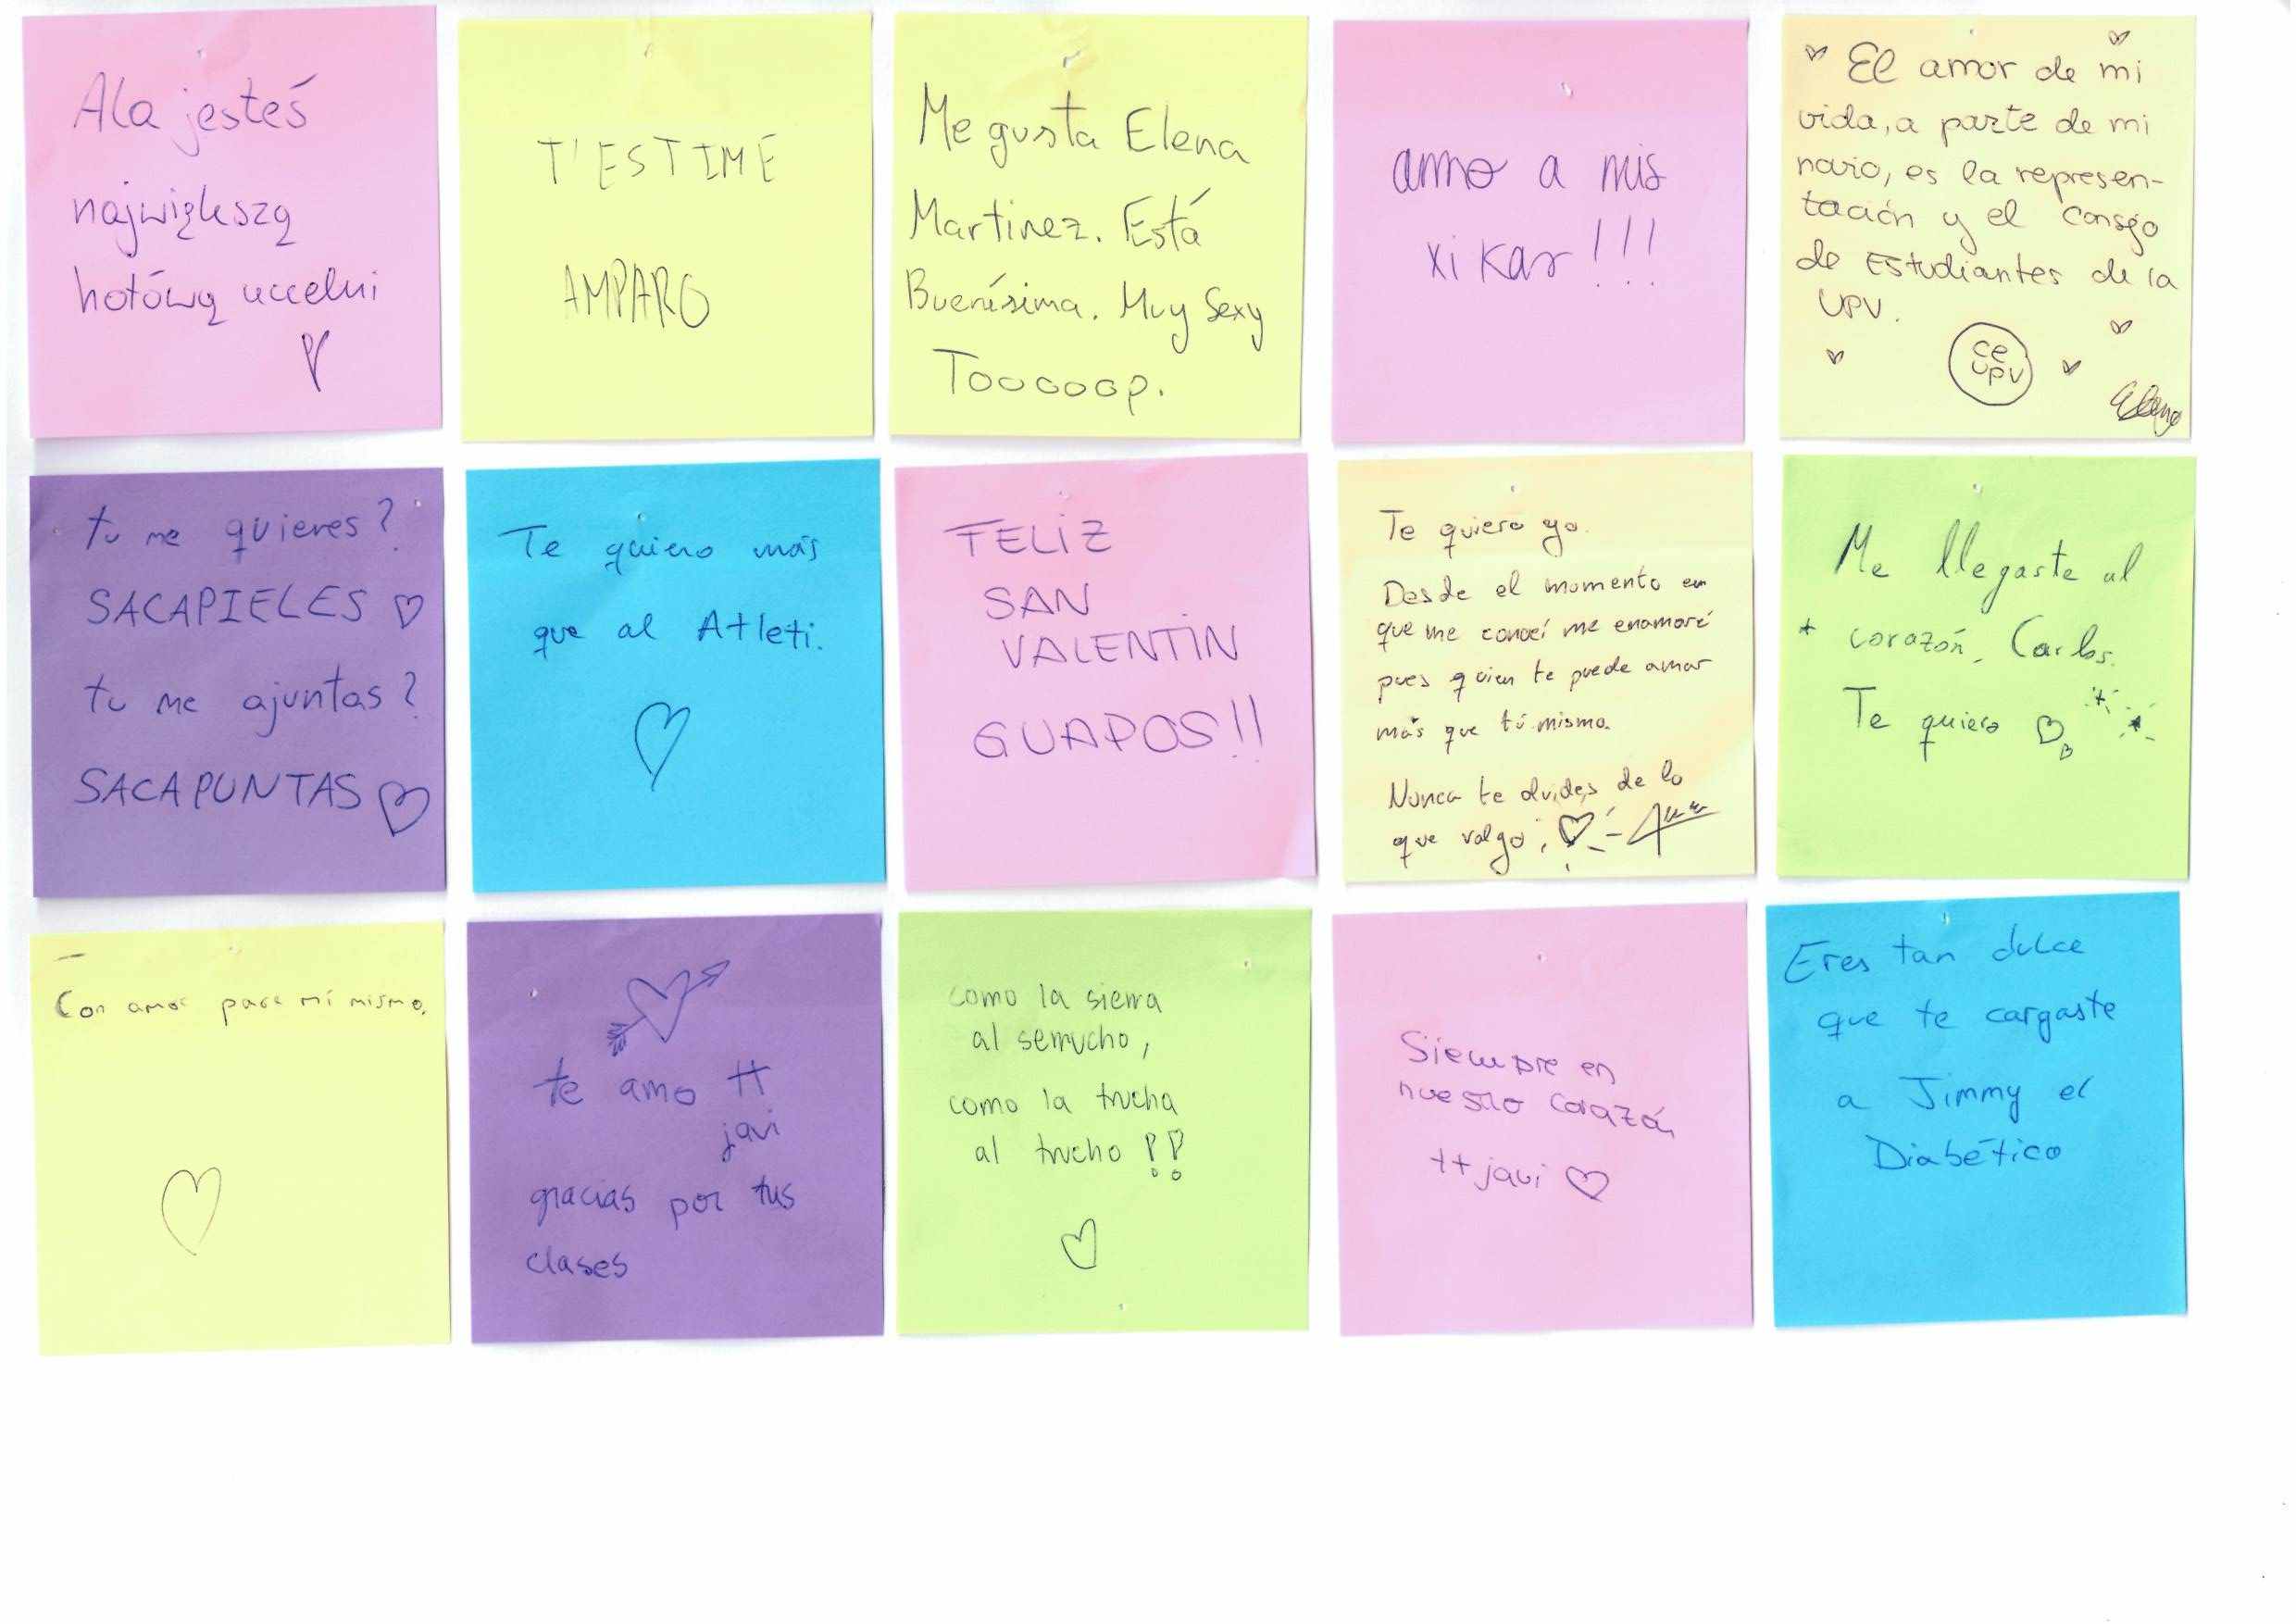 Ala jesteś
największą
hotówą uccelni
T'ESTIME
AMPARO
Me gusta Elena
Martinez. Está
Buenísima. Muy Sexy
Tooooop.
amo a mis
xikas!!!
El amor de mi
vida, a parte de mi
novio, es la represen-
tación y el consejo
de Estudiantes de la
UPV.
ce
upv
Elena
tu me quieres?
SACAPIELES
tu me ajuntas?
SACAPUNTAS
Te quiero más
que al Atleti.
FELIZ
SAN
VALENTIN
GUAPOS!!
Te quiero yo.
Desde el momento en
que me conocí me enamoré
pues quien te puede amar
más que tú mismo.
Nunca te olvides de lo
que valgo.
Me llegaste al
corazón, Carlos.
Te quiero
Con amor para mí mismo.
te amo tt
javi
gracias por tus
clases
como la sierra
al serrucho,
como la trucha
al trucho!!
Siempre en
nuestro corazón
tt javi
Eres tan dulce
que te cargaste
a Jimmy el
Diabético